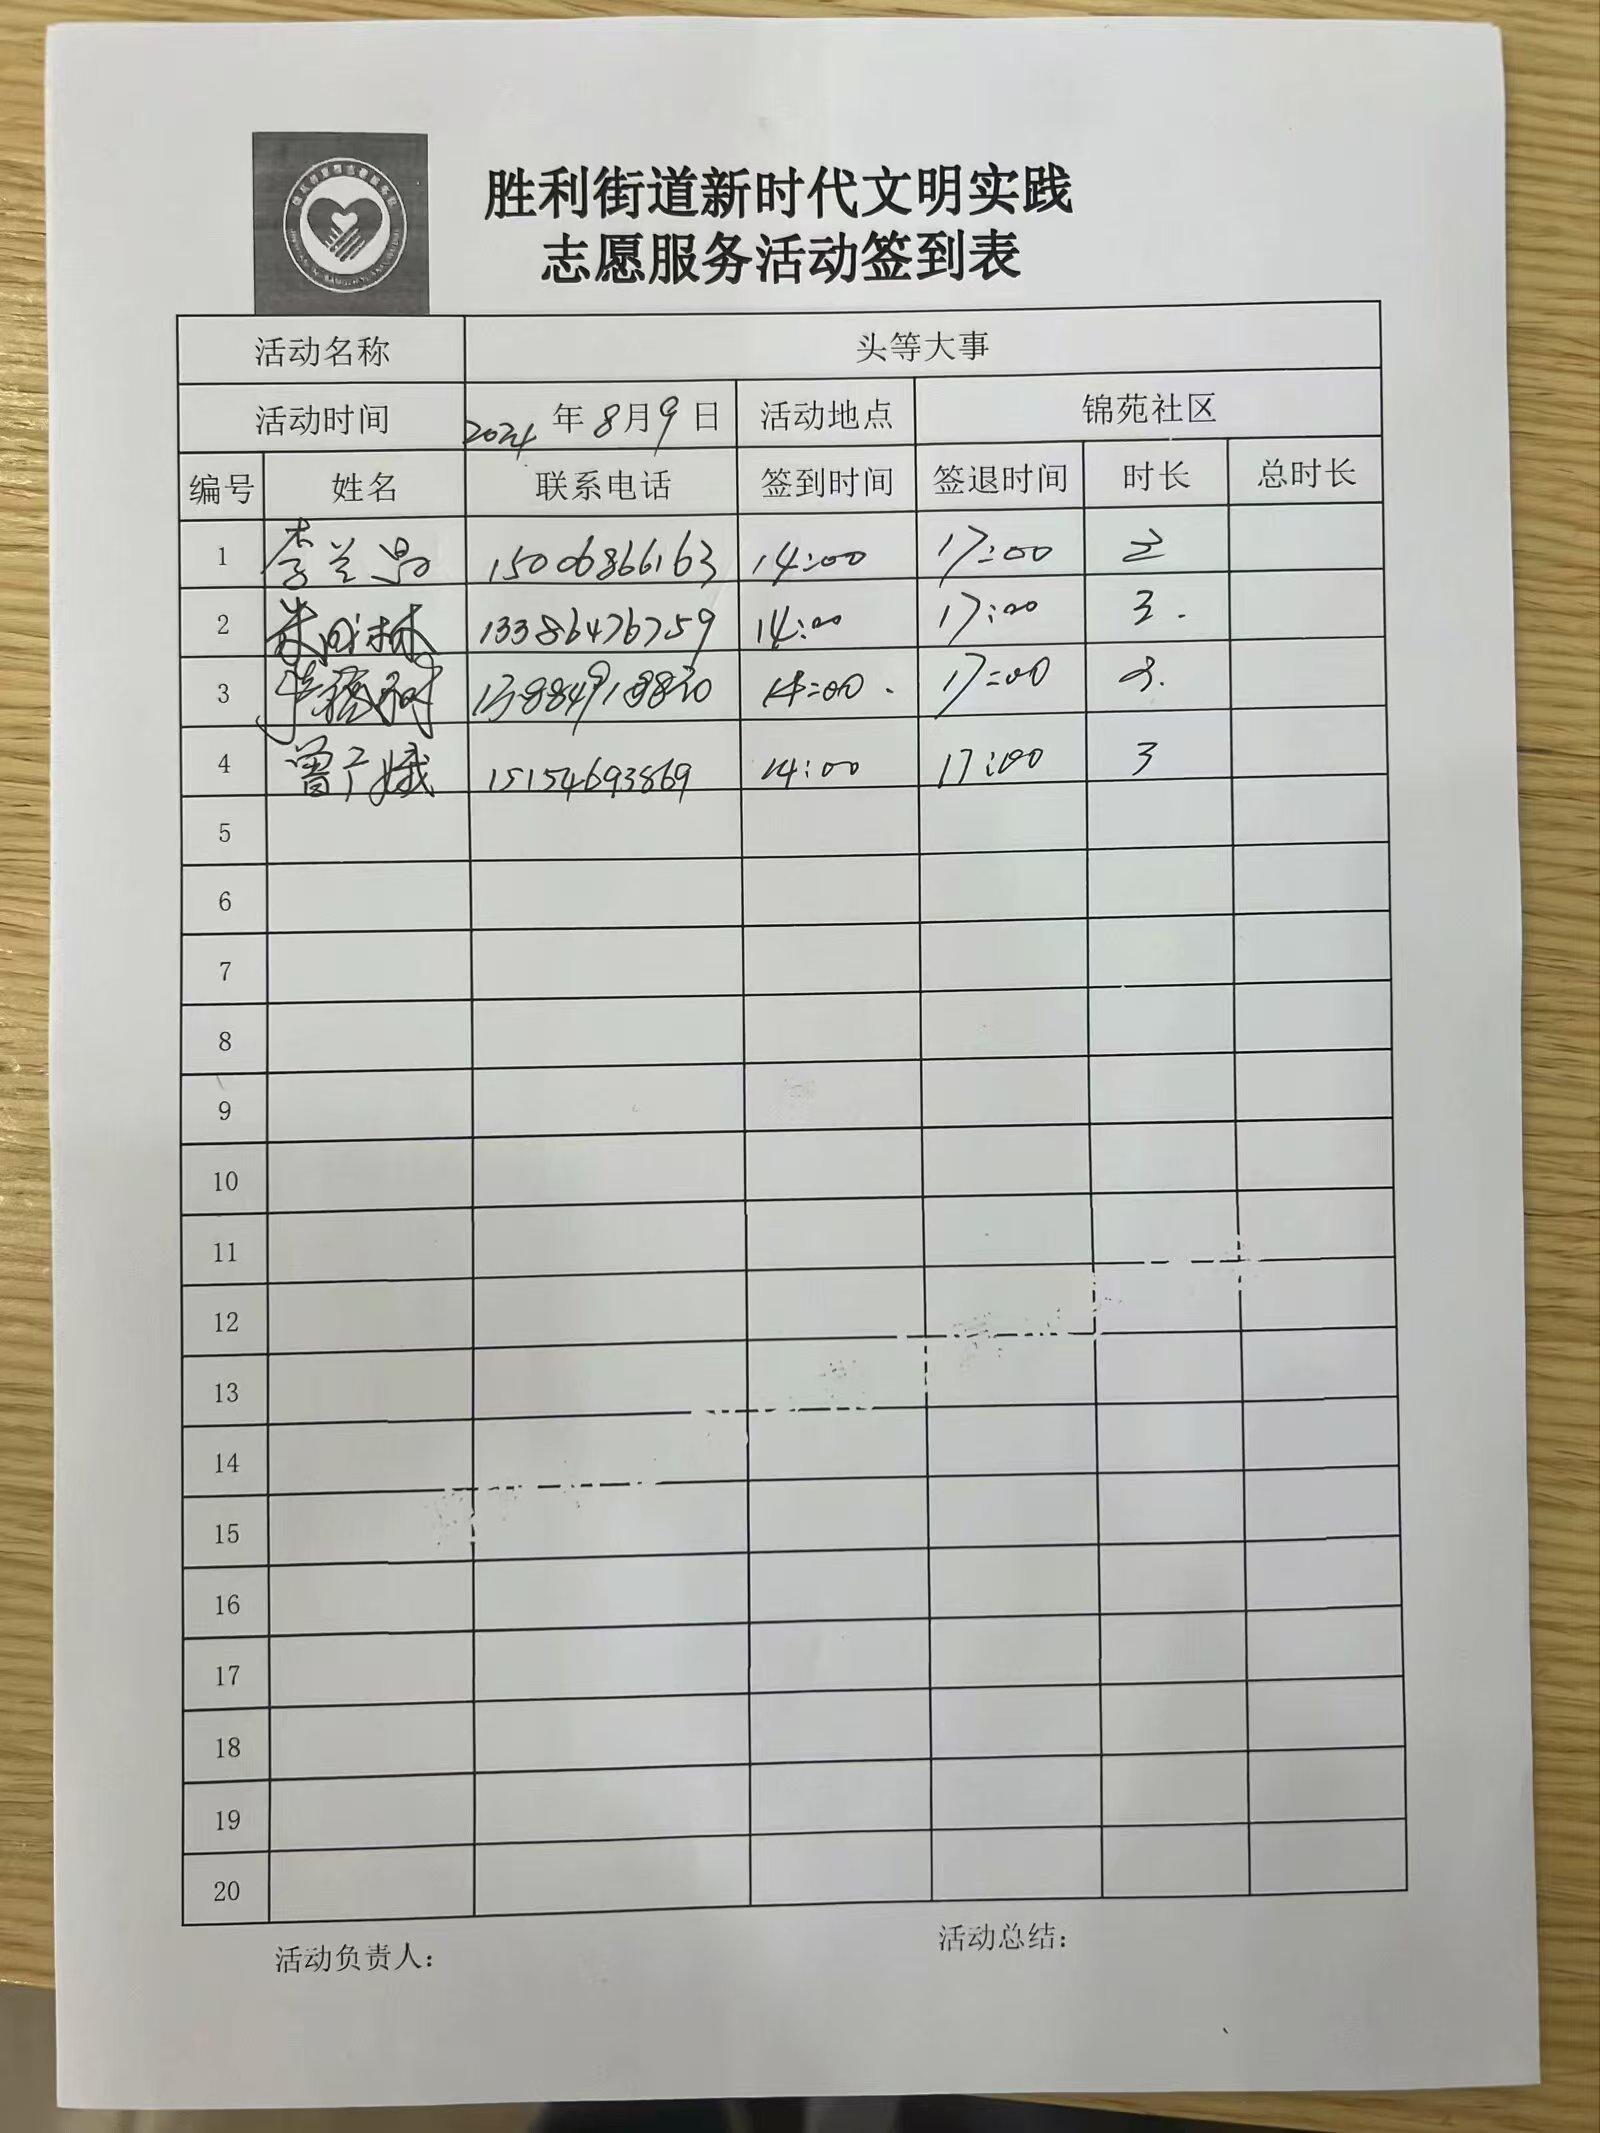 胜利街道新时代文明实践
志愿服务活动签到表
活动名称 头等大事
活动时间 2024年8月9日 活动地点 锦苑社区
编号 姓名 联系电话 签到时间 签退时间 时长 总时长
1 李兰 15006866163 14:00 17:00 3
2 13386476759 14:00 17:00 3.
3 14:00. 17:00 3.
4 曾广娥 15154693869 14:00 17:00 3
5
6
7
8
9
10
11
12
13
14
15
16
17
18
19
20
活动负责人： 活动总结：